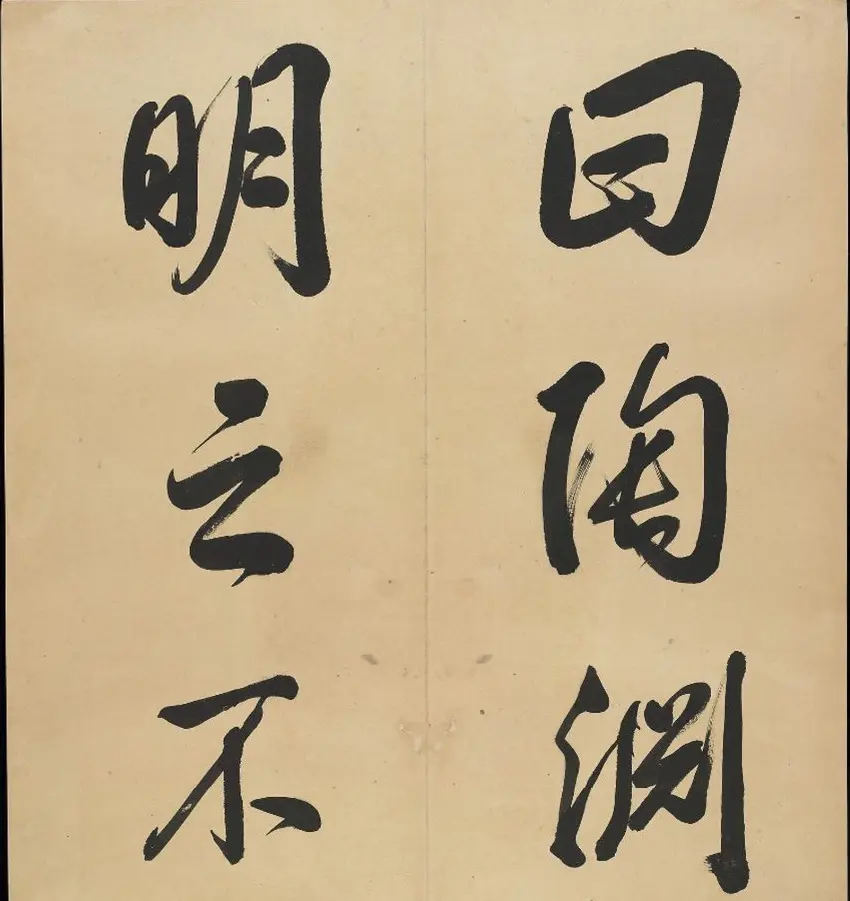 曰陶渊
明云不